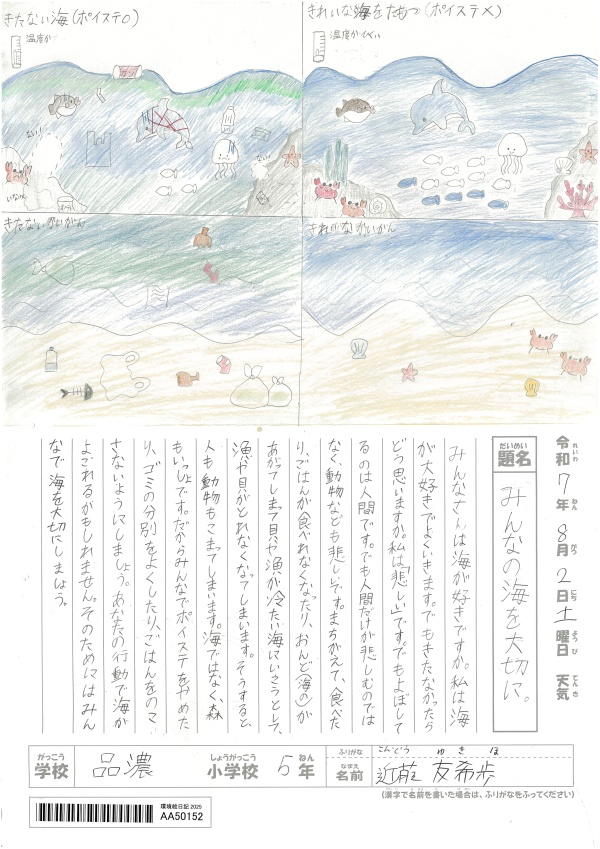 きたない海(ポイステ○)
温度が
きれいな海をたもつ(ポイステ×)
温度がひくい
ない!
ない!
いない
きたないかいがん
きれいなかいがん
令和7年8月2日土曜日 天気
れいわ ねん がつ にち ようび てんき
だいめい
題名
みんなの海を大切に。
みなさんは海が好きですか。私は海
が大好きでよくいきます。でもきたなかったら
どう思いますか。私は「悲しい」です。でもよごして
るのは人間です。でも人間だけが悲しむのでは
なく、動物なども悲しいです。まちがえて、食べた
り、ごはんが食べれなくなったり、おんど(海の)が
あがってしまって貝や漁が冷たい海にいこうとして、
漁や貝がとれなくなってしまいます。そうすると、
人も動物もこまってしまいます。海ではなく、森
もいっしょです。だからみんなでポイステをやめた
り、ゴミの分別をよくしたり、ごはんをのこ
さないようにしましょう。あなたの行動で海が
よごれるかもしれません。そのためにはみん
なで海を大切にしましょう。
がっこう しょうがっこう ねん
学校 品濃 小学校 5年
ふりがな こんどう ゆきほ
なまえ
名前 近藤 友希歩
(漢字で名前を書いた場合は、ふりがなをふってください)
環境絵日記 2025
AA50152